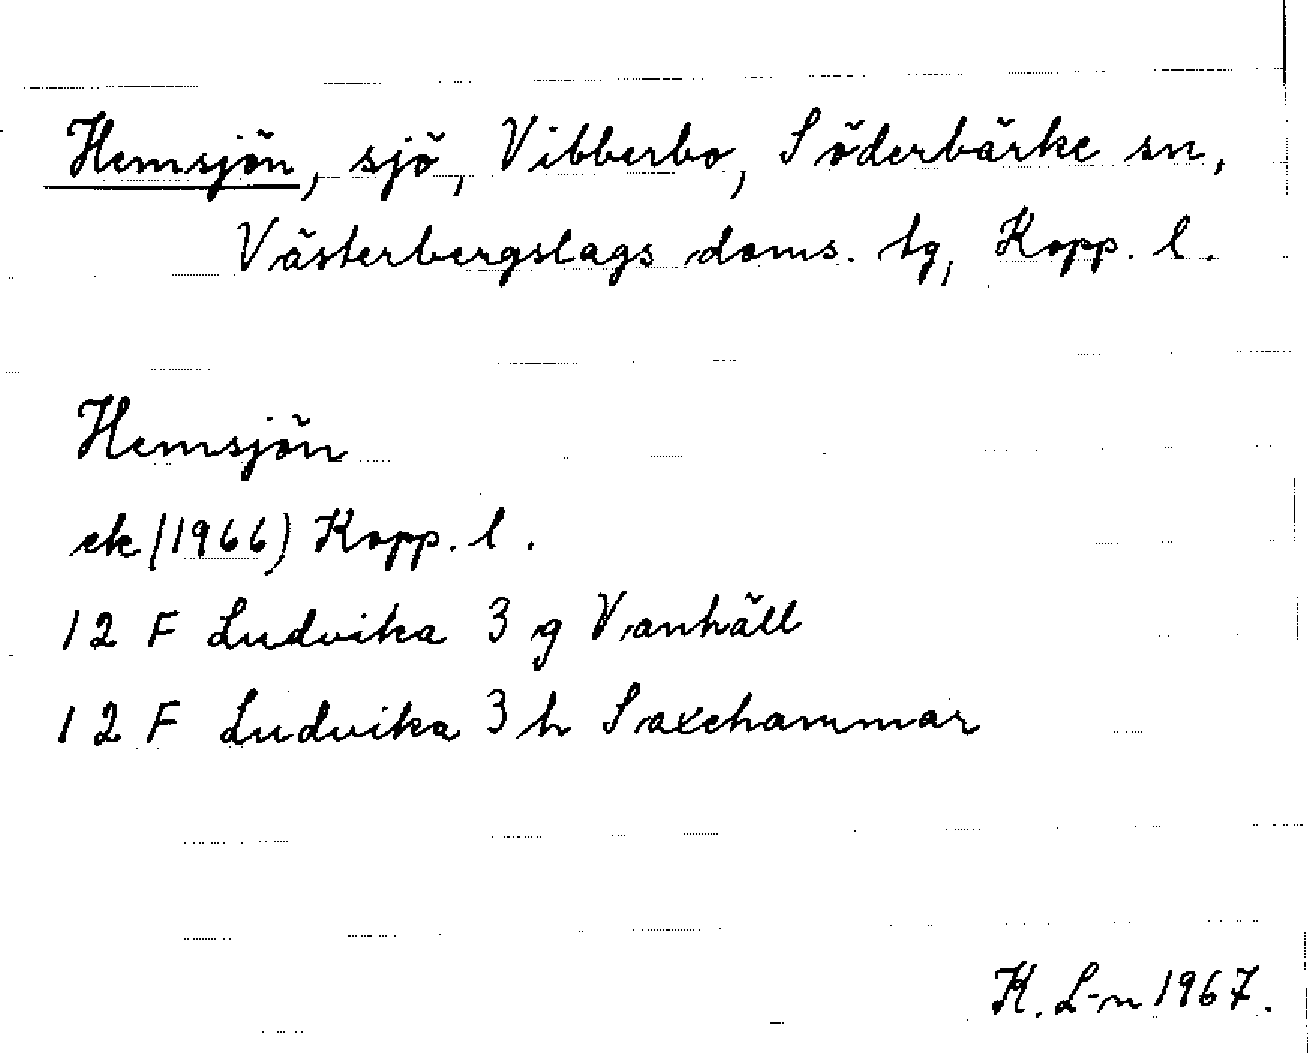 Hemsjön, sjö, Vibberbo, Söderbärke sn,
Västerbergslags doms. tg, Kopp. l.
Hemsjön
ek (1966) Kopp. l.
12 F Ludvika 3 g Vanhäll
12 F Ludvika 3 h Saxehammar
K. L-n 1967.